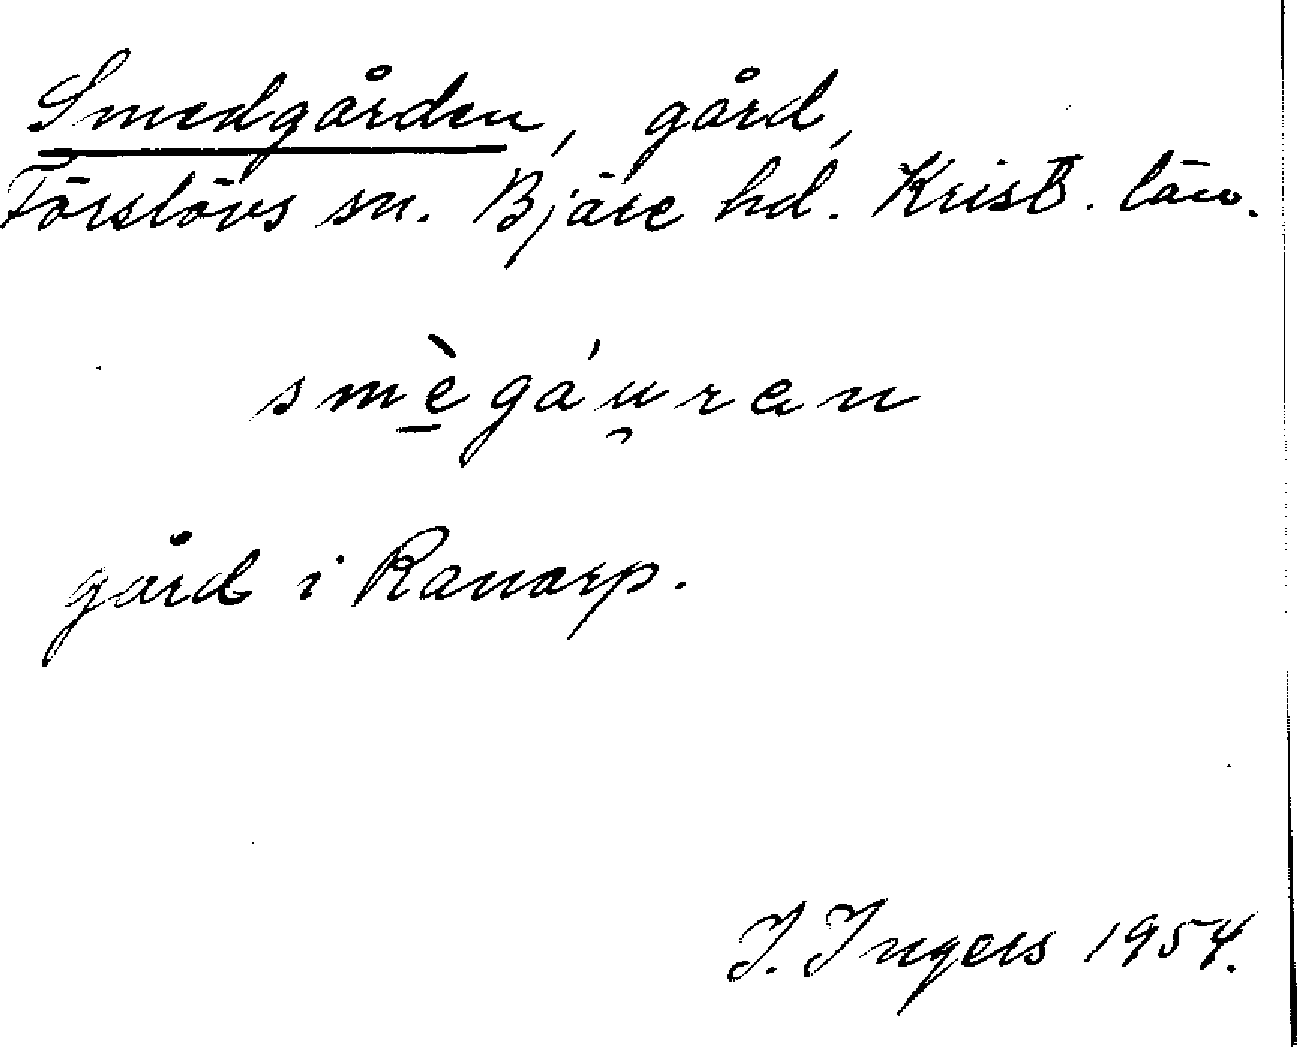 Smedgården, gård,
Förslövs sn. Bjäre hd. Krist. län.
smè̱gáu̯ran
gård i Ranarp.
I. Ingers 1954.